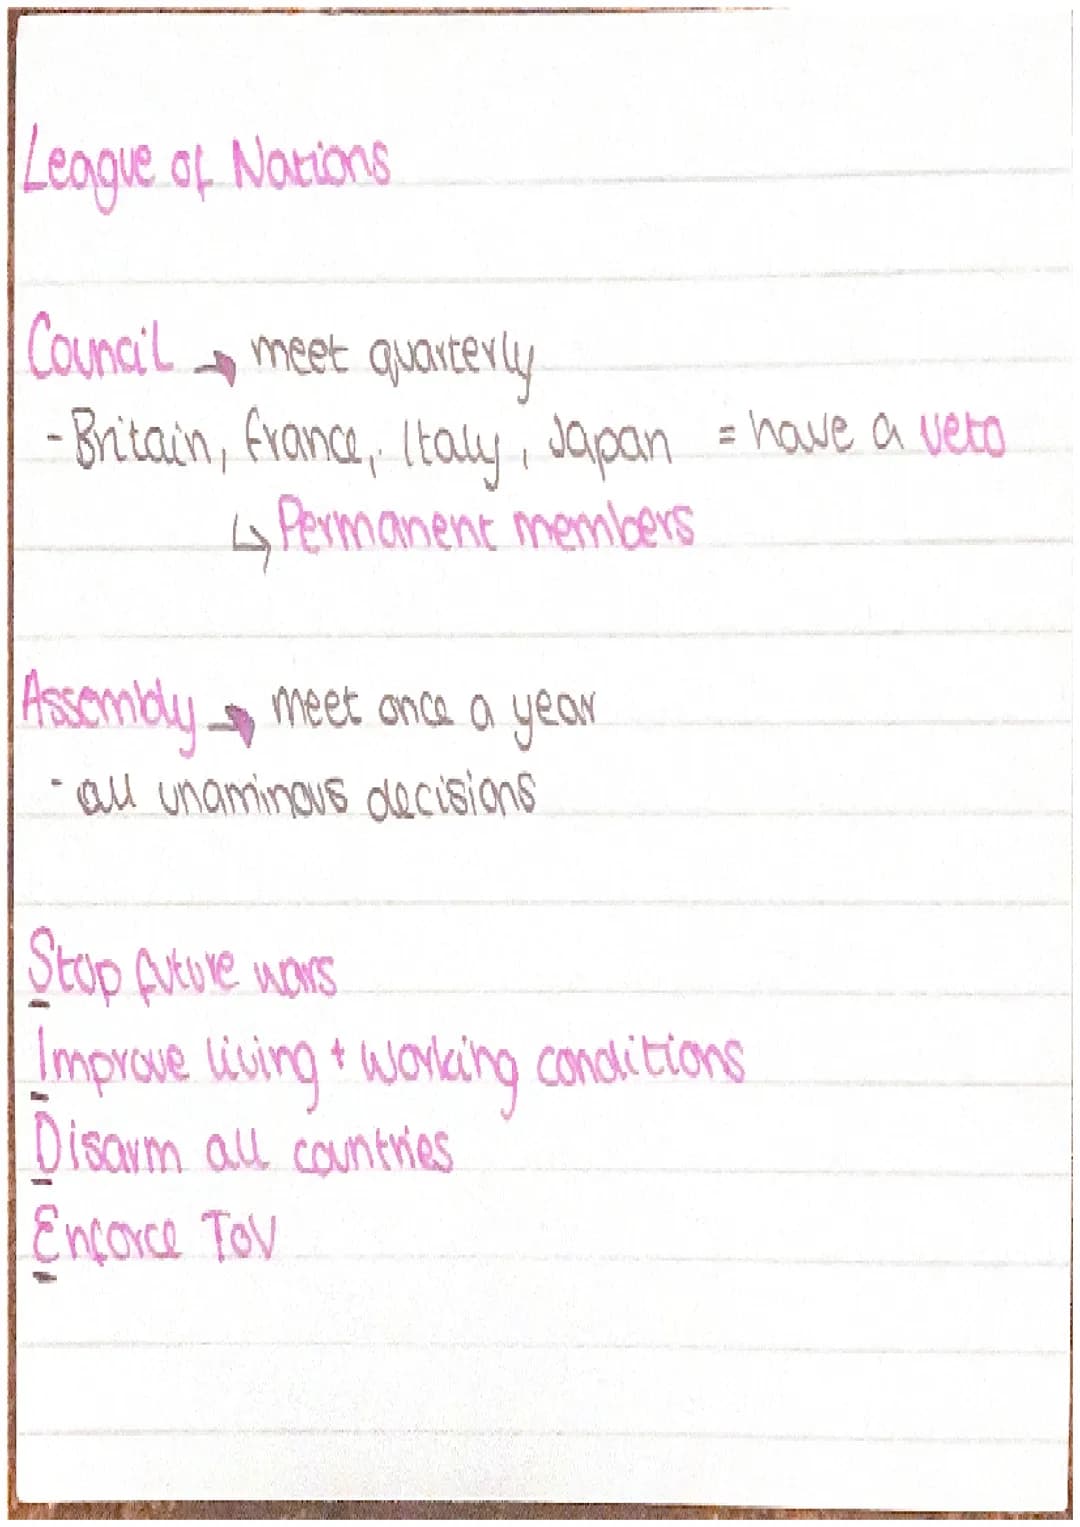 League of Nations
Council → meet quarterly
- Britain, France, Italy, Japan = have a veto
↳ Permanent members
Assembly → meet once a year
- all unaminous decisions
Stop future wars
Improve living + working conditions
Disarm all countries
Enforce ToV